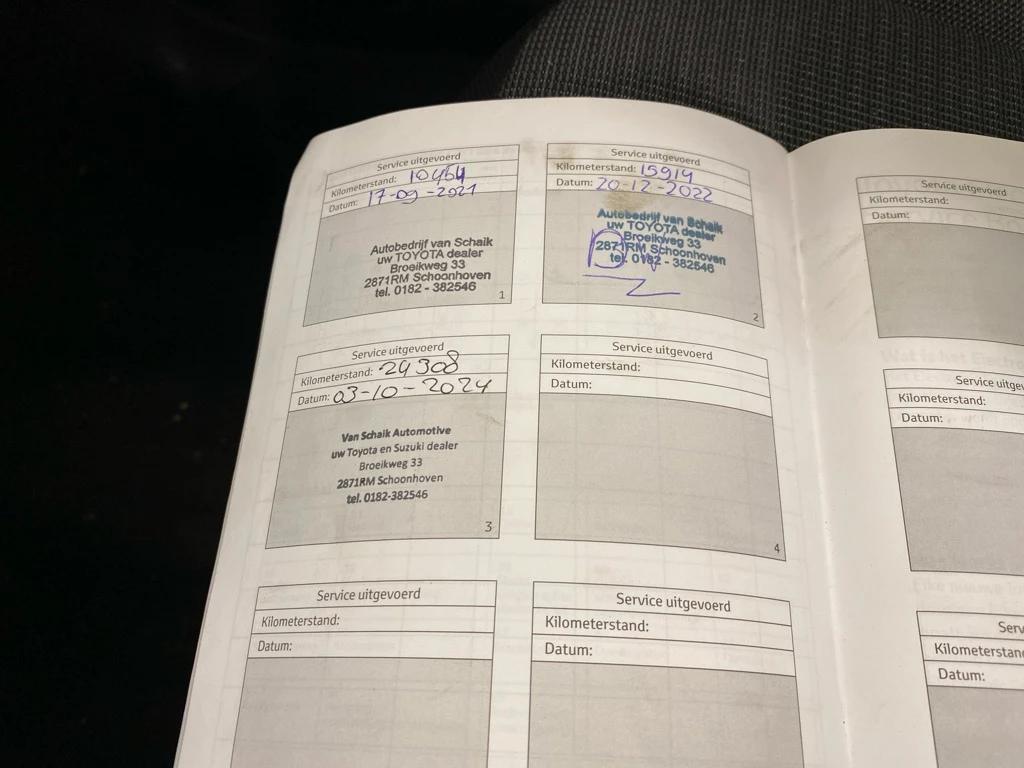 Service uitgevoerd
Kilometerstand: 10464
Datum: 17-09-2021
Autobedrijf van Schaik
uw TOYOTA dealer
Broeikweg 33
2871RM Schoonhoven
tel. 0182 - 382546
1
Service uitgevoerd
Kilometerstand: 15919
Datum: 20-12-2022
Autobedrijf van Schaik
uw TOYOTA dealer
Broeikweg 33
2871RM Schoonhoven
tel. 0182 - 382546
2
Service uitgevoerd
Kilometerstand: 24308
Datum: 03-10-2024
Van Schaik Automotive
uw Toyota en Suzuki dealer
Broeikweg 33
2871RM Schoonhoven
tel. 0182-382546
3
Service uitgevoerd
Kilometerstand:
Datum:
4
Service uitgevoerd
Kilometerstand:
Datum:
Service uitgevoerd
Kilometerstand:
Datum:
Service uitgevoerd
Kilometerstand:
Datum:
Service uitgev
Kilometerstand:
Datum:
Serv
Kilometerstand
Datum: